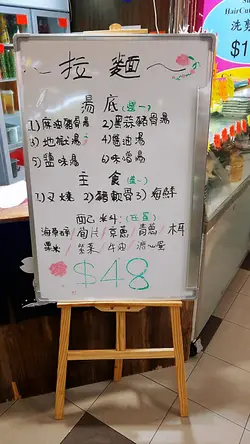 拉麵
湯底(選一)
1)麻油豬骨湯 2)黑蒜豬骨湯
3)地獄湯 4)醬油湯
5)鹽味湯 6)味噌湯
主食(選一)
1)叉燒 2)豬軟骨 3)海鮮
配料(任選)
海帶/筍片/京蔥/青蔥/木耳
粟米/生菜/牛油/溏心蛋
$48
洗剪
HairCut
$